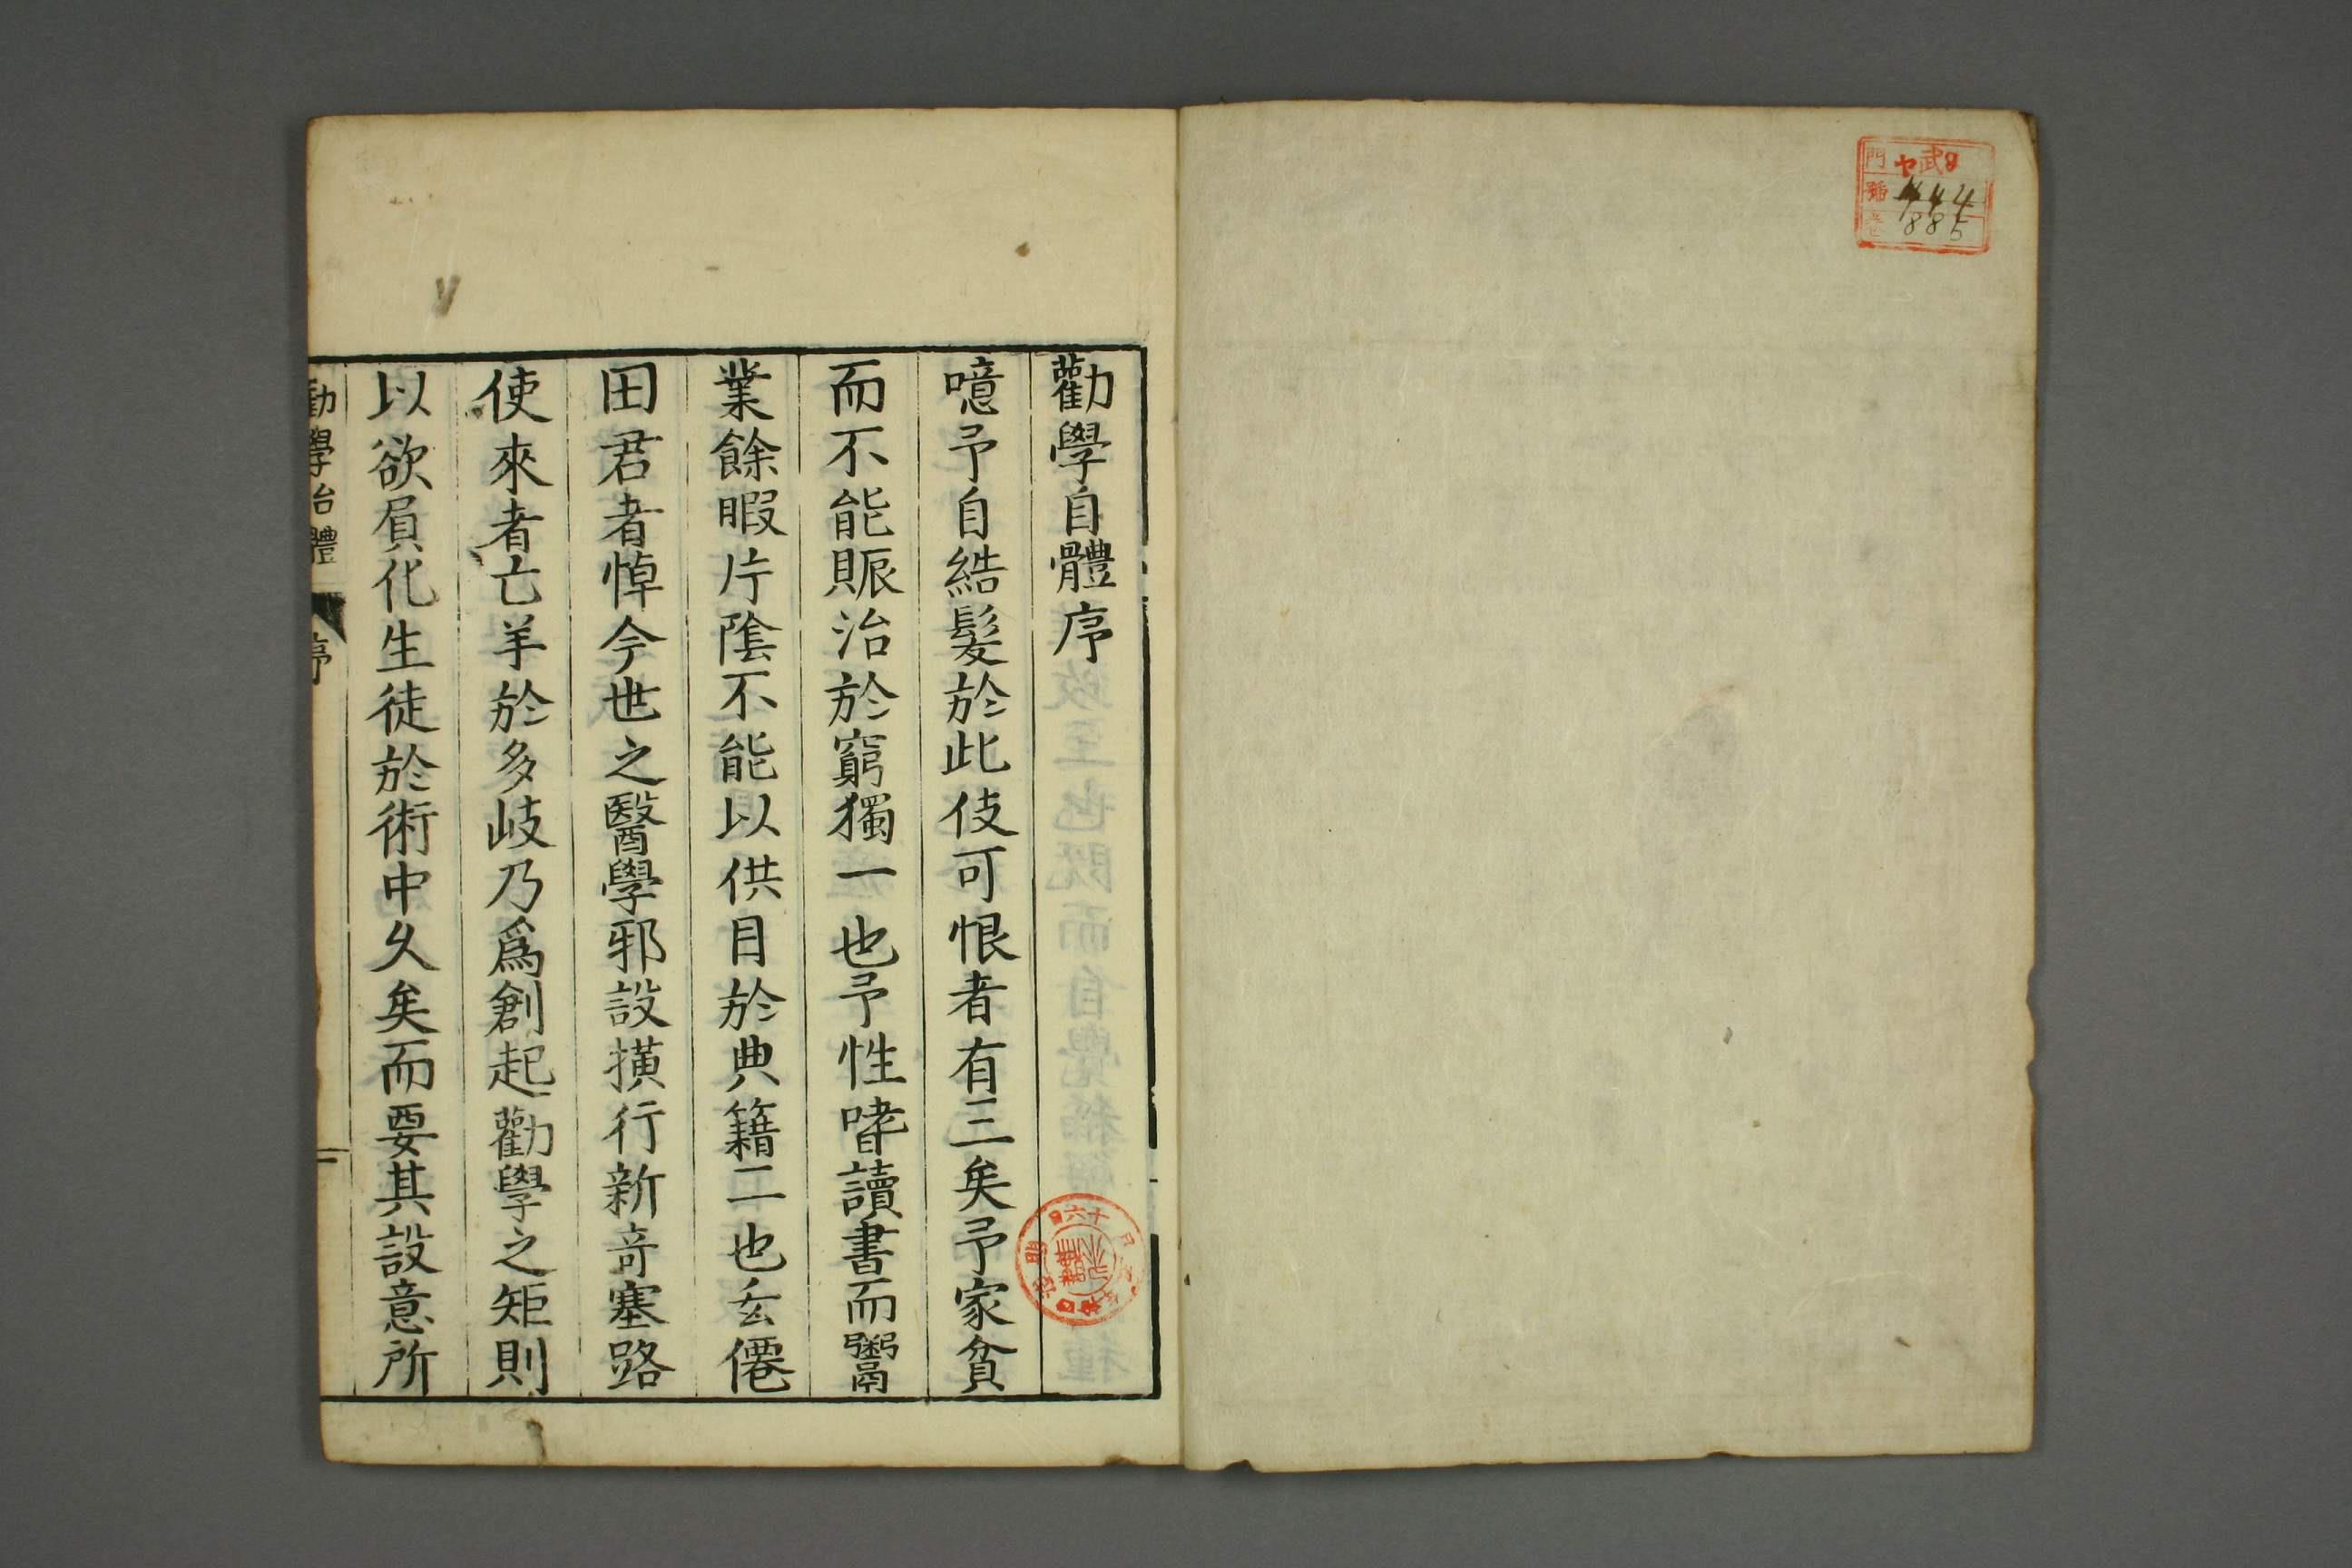 門 ヤ武8
號 444
卷 885
勸學自體序
噫予自結髮於此伎可恨者有三矣予家貧
而不能賑治於窮獨一也予性嗜讀書而鬻
業餘暇片陰不能以供目於典籍二也玄僊
田君者悼今世之醫學邪設橫行新竒塞路
使來者亡羊於多岐乃爲創起勸學之矩則
以欲員化生徒於術中久矣而要其設意所
勸學治體 序 一